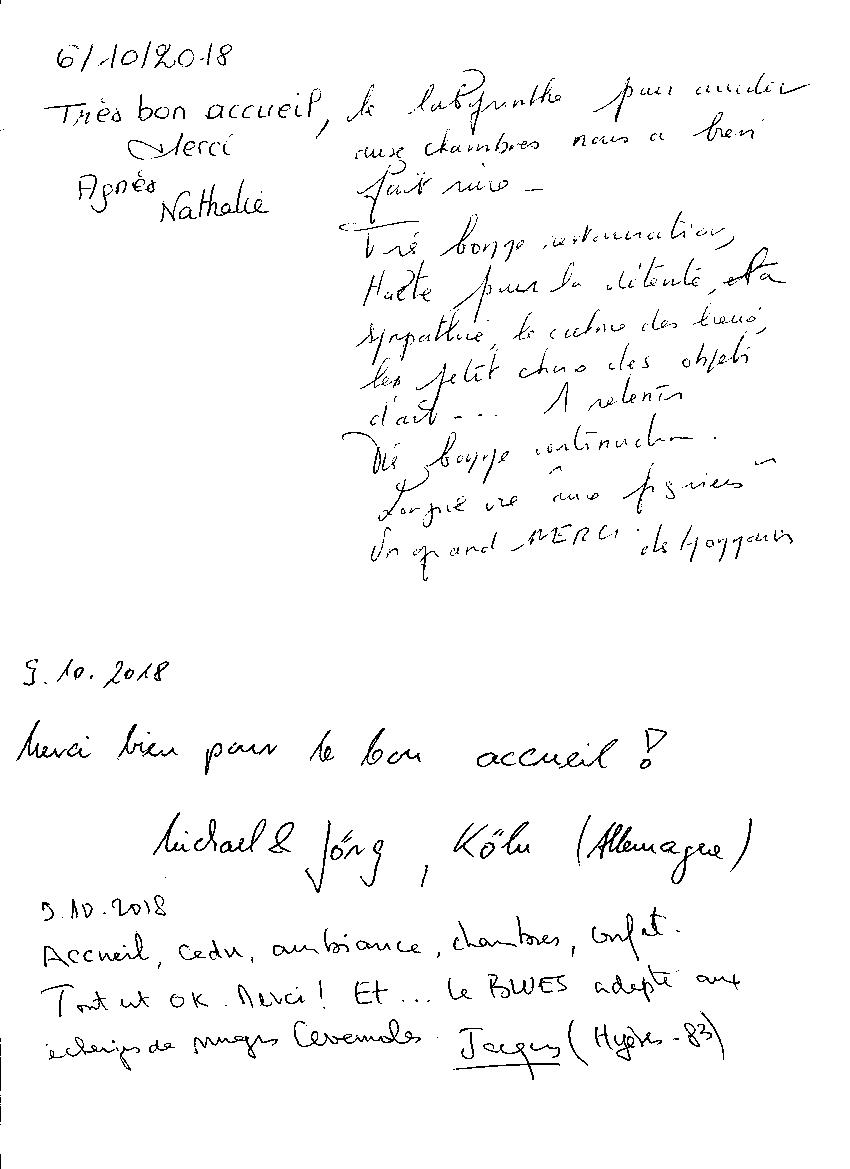 6/10/2018
Très bon accueil,
Merci
Agnès
Nathalie
le labyrinthe pour accéder
aux chambres nous a bien
fait rire -
Très bonne restauration,
Halte pour la détente, et la
sympathie, le calme des lieux,
les petit chers des objets
d'art - - - A retenir
Très bonne continuation.
Longue vie "aux figuiers"
Un grand MERCI
9.10.2018
Merci bien pour le bon accueil !
Michael & Jörg, Köln (Allemagne)
9.10.2018
Accueil, cadre, ambiance, chambres, confort.
Tout est OK. Merci ! Et ... le BLUES adapté aux
de nuages Cévenoles. Jacques (Hyères - 83)